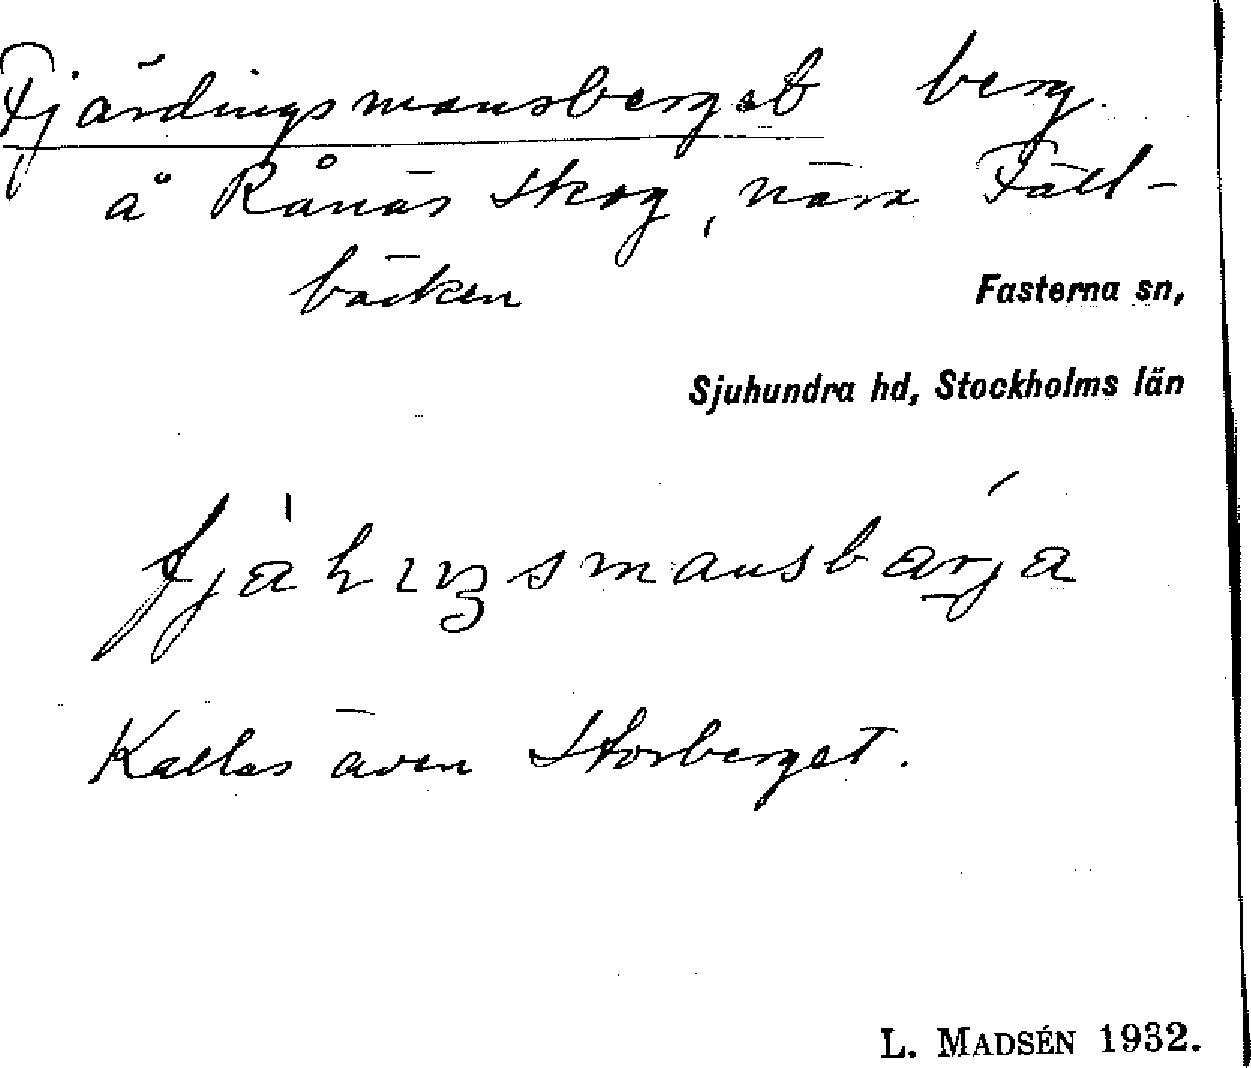 Fjärdingsmansberget berg.
å Rånäs Skog, nära Fäll-
bäcken
Fasterna sn,
Sjuhundra hd, Stockholms län
Kallas även Storberget.
L. MADSÉN 1932.